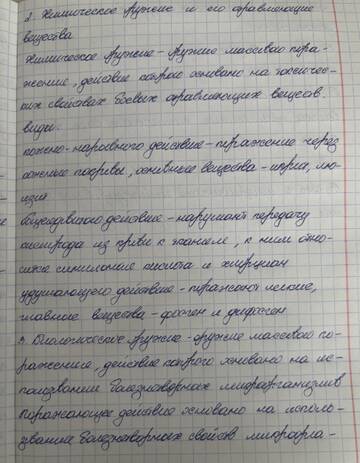 2. Химическое оружие и его отравляющие
вещества
Химическое оружие - оружие массового пора-
жения, действие которого основано на токсичес-
ких свойствах боевых отравляющих веществ.
виды:
кожно-нарывного действие - поражение через
кожные покровы, основные вещества - иприт, лю-
изит
общеядовитого действие - нарушают передачу
кислорода из крови к тканям, к ним отно-
сится синильная кислота и хлорциан
удушающего действие - поражают легкие,
главные вещества - фосген и дифосген
3. Биологическое оружие - оружие массового по-
ражения, действие которого основано на ис-
пользовании болезнетворных микроорганизмов
Поражающее действие основано на исполь-
зовании болезнетворных свойств микроорга-